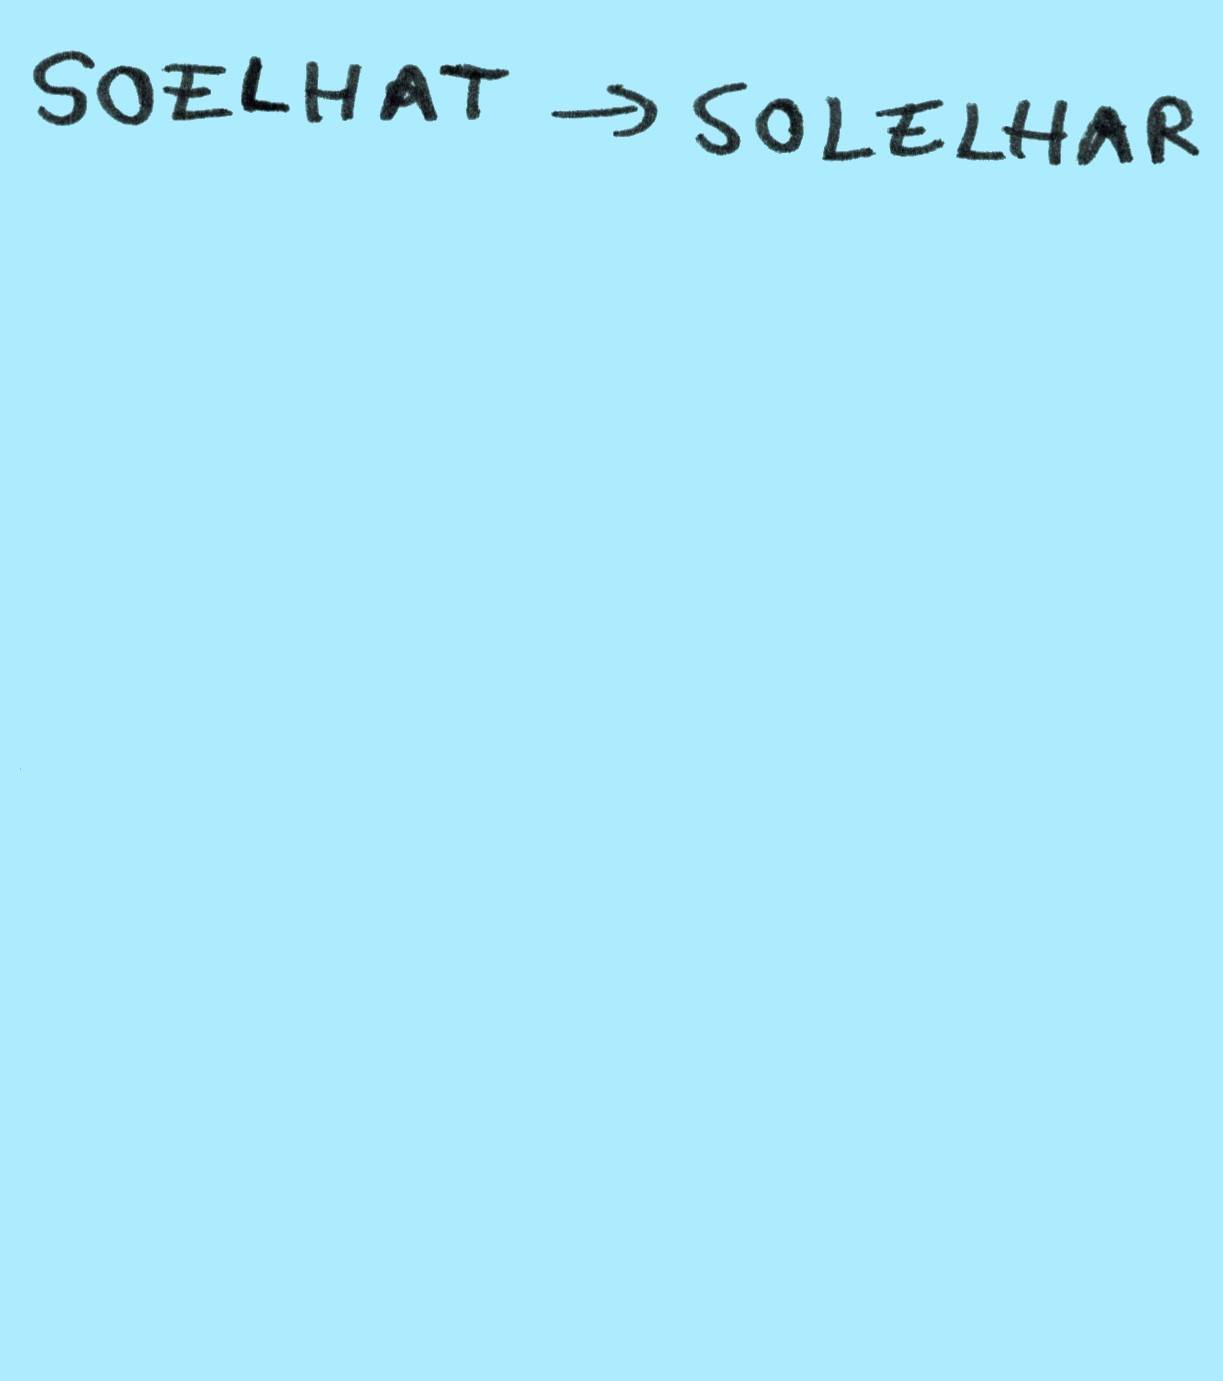 SOELHAT → SOLELHAR